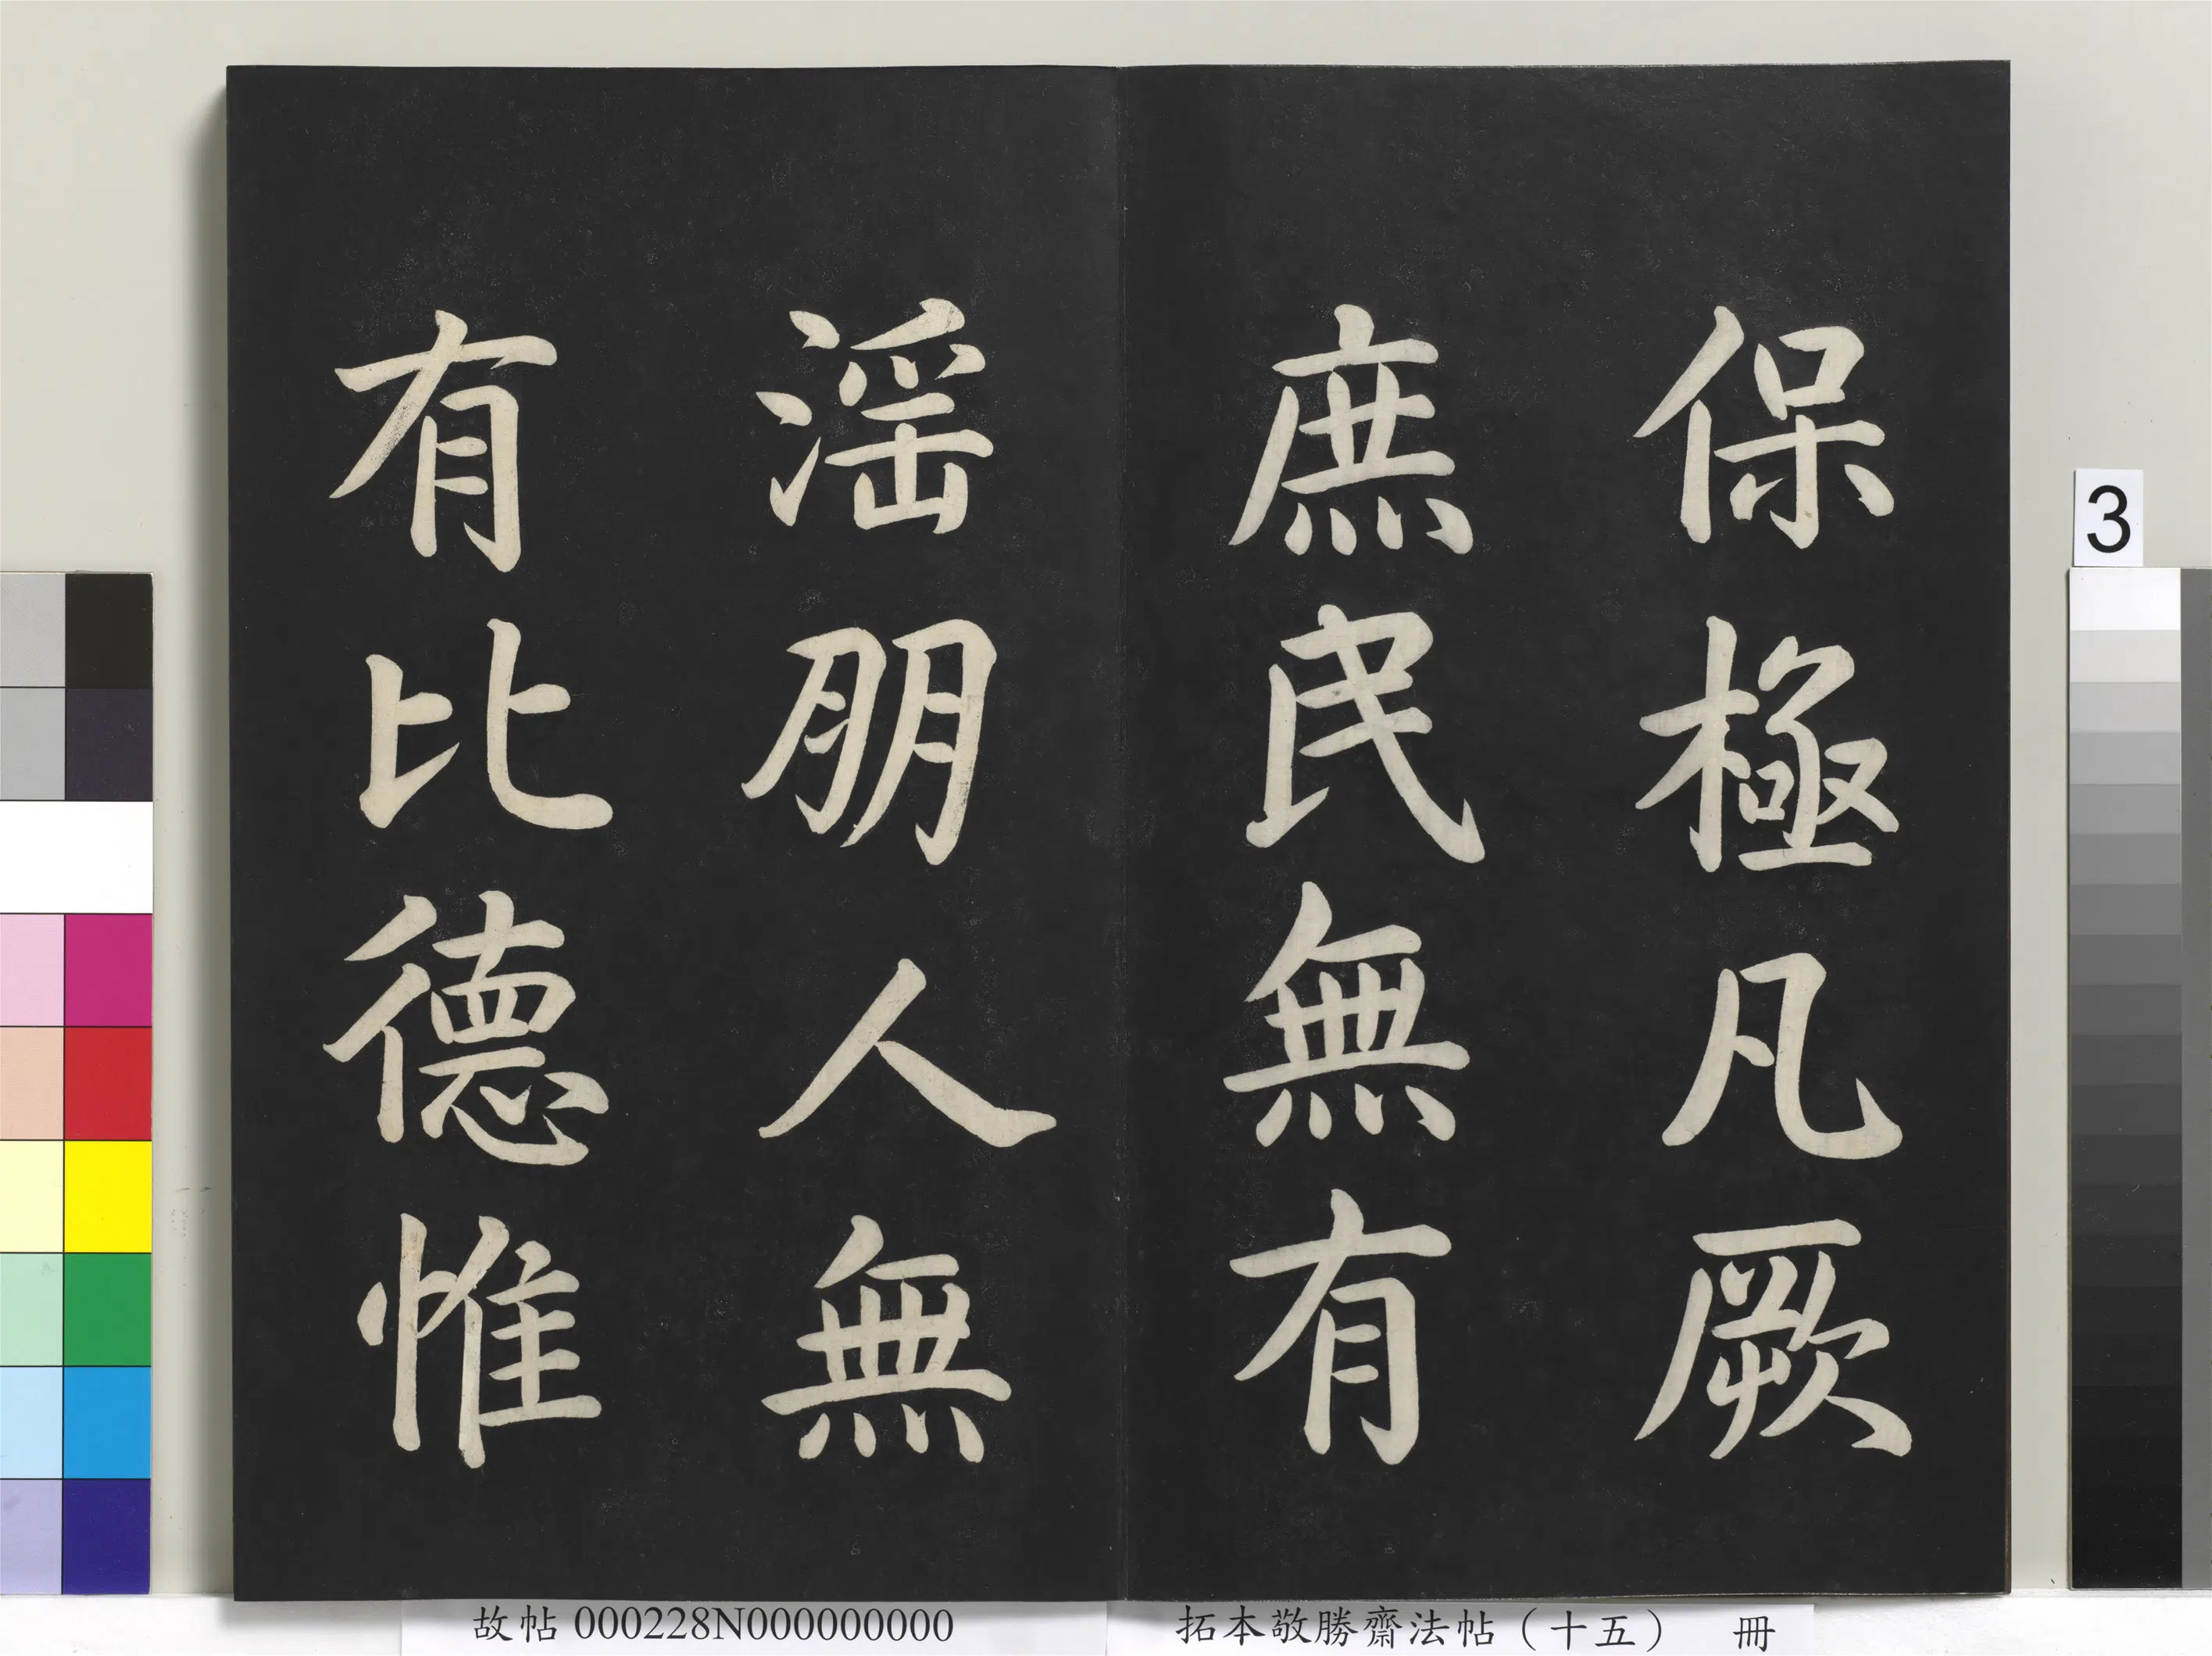 保極凡厥
庶民無有
淫朋人無
有比德惟
3
故帖 000228N000000000
拓本敬勝齋法帖（十五） 冊